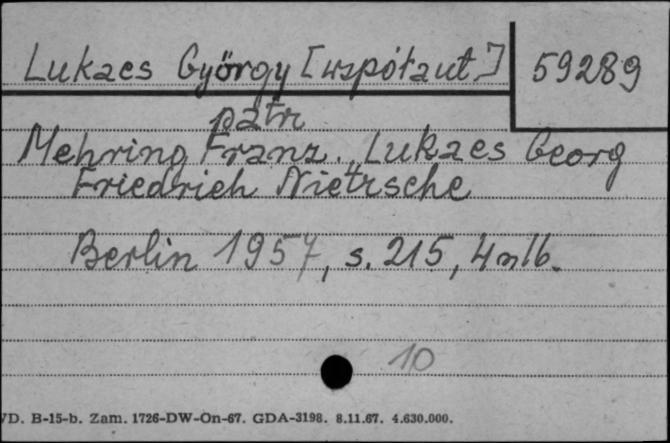 Lukacs György [współaut.] 59289
patr
Mehring Franz. Lukacs Georg
Friedrich Nietzsche
Berlin 1957, s. 215, 4 nlb.
10
VD. B-15-b. Zam. 1726-DW-On-67. GDA-3198. 8.11.67. 4.630.000.